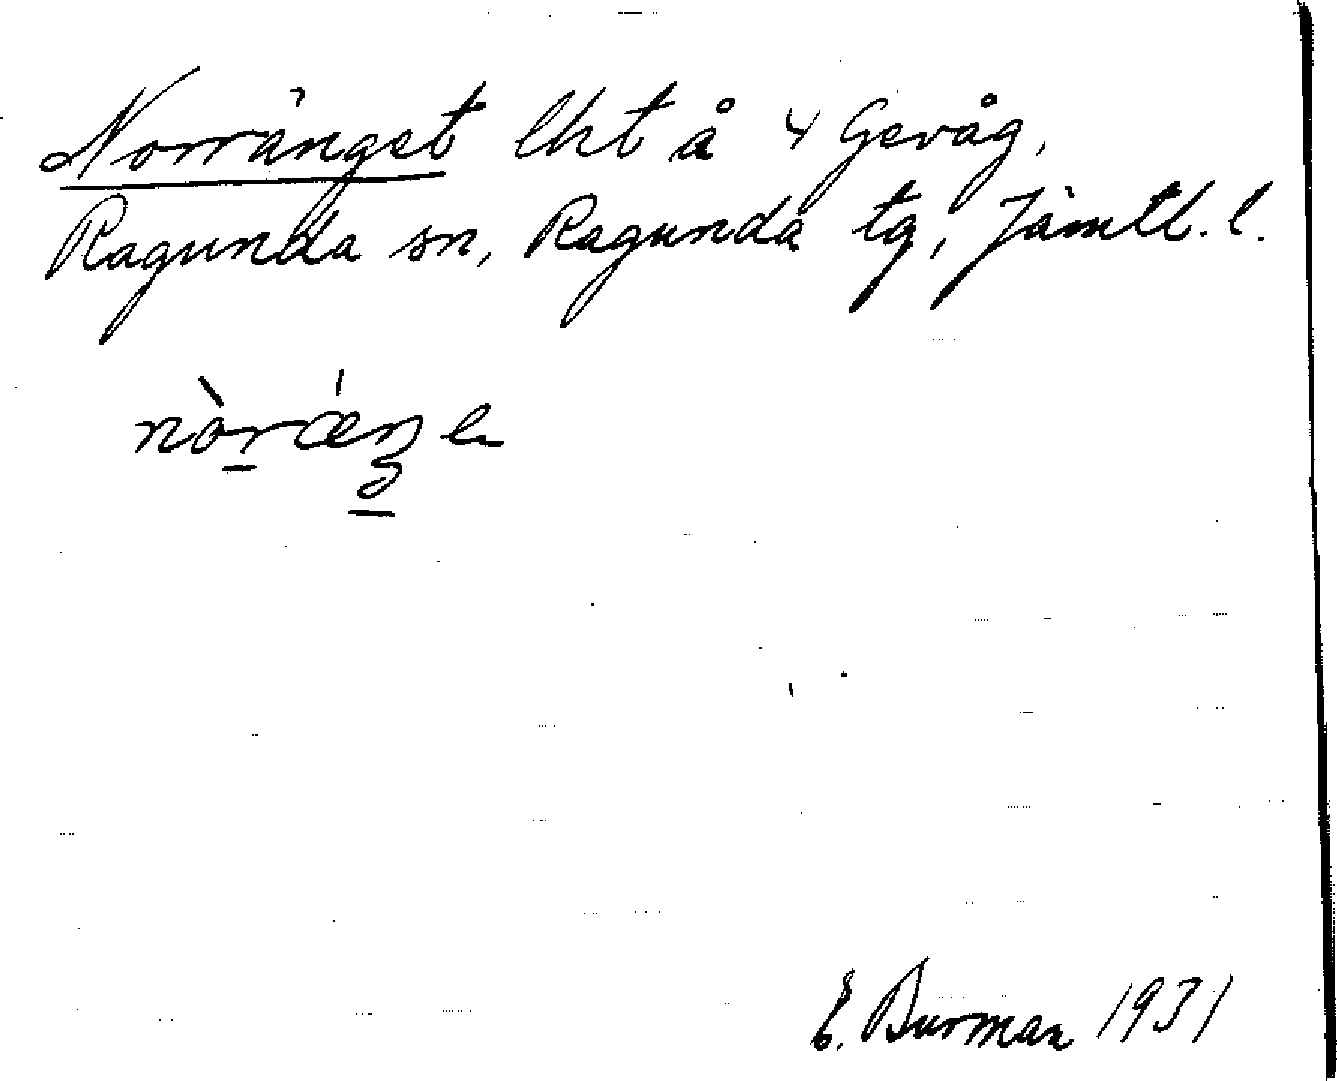 Norränget lht å 4 Gevåg,
Ragunda sn, Ragunda tg, Jämtl. l.
nòrǽŋe
E. Burman 1931